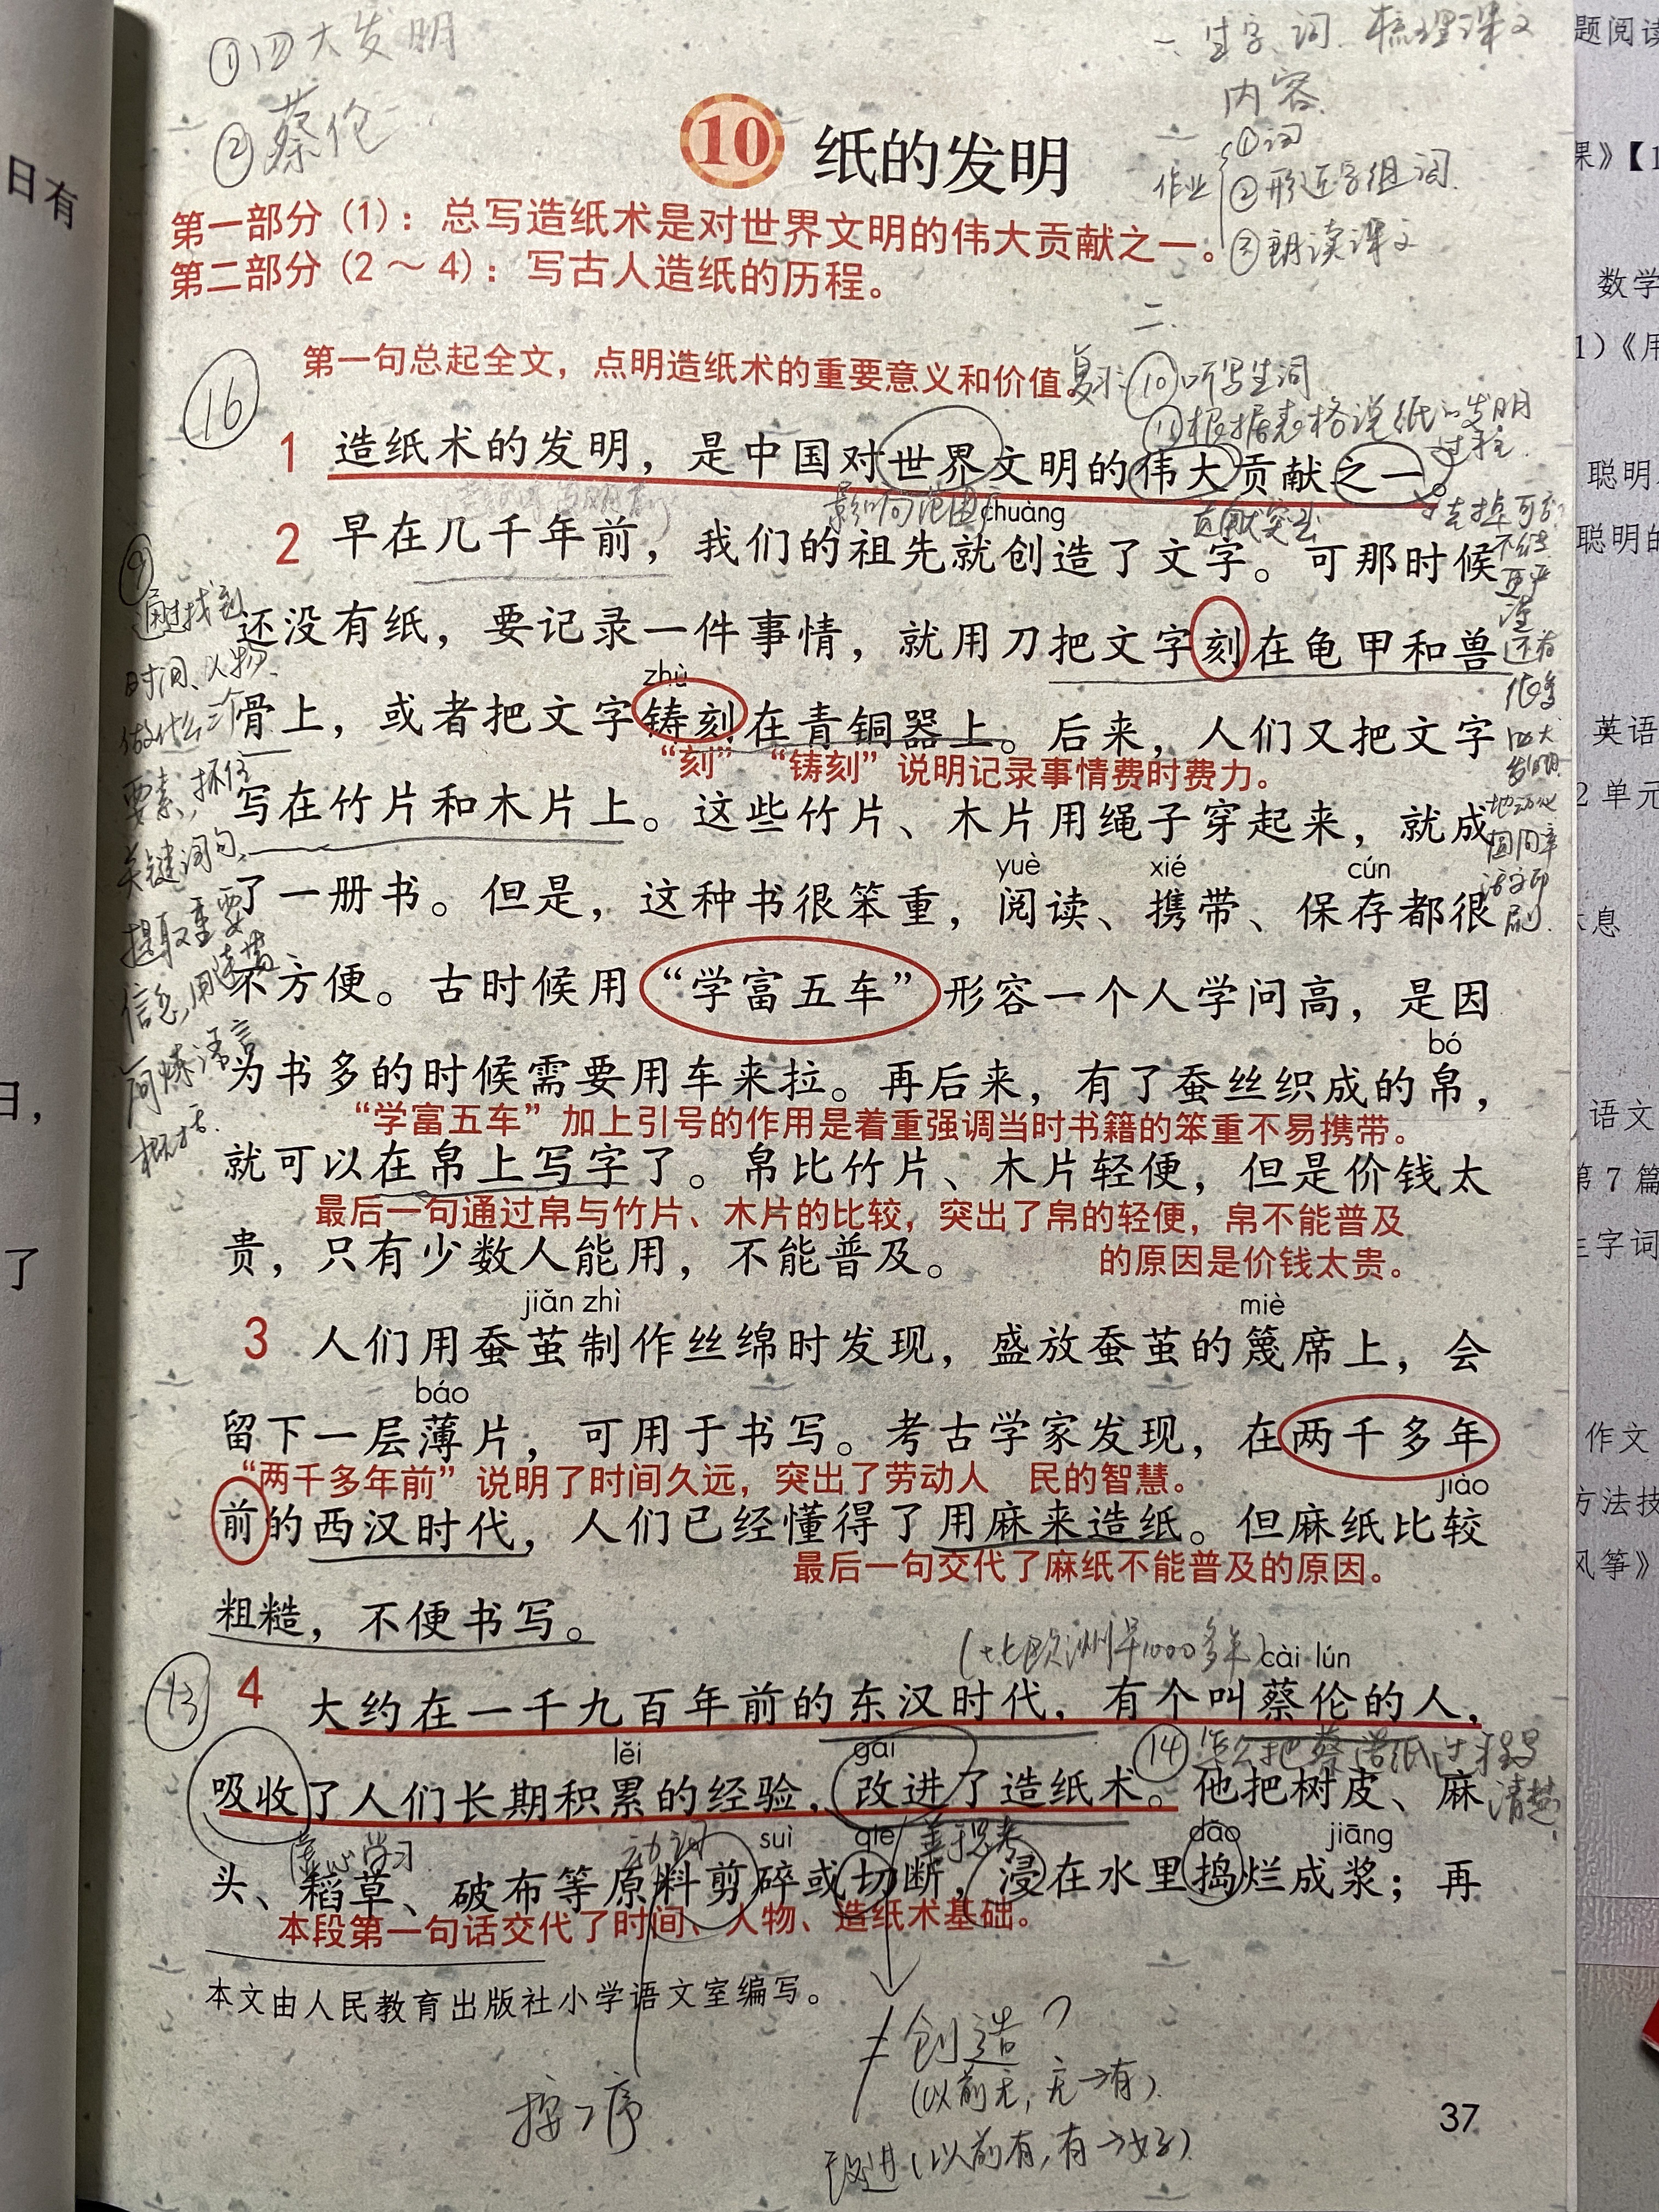 ①四大发明
②蔡伦
一、生字、词、梳理课文
内容
作业
①词
②形近字组词
③朗读课文
10 纸的发明
第一部分(1)：总写造纸术是对世界文明的伟大贡献之一。
第二部分(2～4)：写古人造纸的历程。
二、
第一句总起全文，点明造纸术的重要意义和价值。
复习：⑩听写生词
⑪根据表格说纸的发明
过程
⑯
1 造纸术的发明，是中国对世界文明的伟大贡献之一。
影响范围广
贡献突出
chuàng
2 早在几千年前，我们的祖先就创造了文字。可那时候
还没有纸，要记录一件事情，就用刀把文字刻在龟甲和兽
zhù
骨上，或者把文字铸刻在青铜器上。后来，人们又把文字
“刻”“铸刻”说明记录事情费时费力。
写在竹片和木片上。这些竹片、木片用绳子穿起来，就成
yuè xié cún
了一册书。但是，这种书很笨重，阅读、携带、保存都很
不方便。古时候用“学富五车”形容一个人学问高，是因
bó
为书多的时候需要用车来拉。再后来，有了蚕丝织成的帛，
“学富五车”加上引号的作用是着重强调当时书籍的笨重不易携带。
就可以在帛上写字了。帛比竹片、木片轻便，但是价钱太
最后一句通过帛与竹片、木片的比较，突出了帛的轻便，帛不能普及
贵，只有少数人能用，不能普及。
的原因是价钱太贵。
jiǎn zhì miè
3 人们用蚕茧制作丝绵时发现，盛放蚕茧的篾席上，会
báo
留下一层薄片，可用于书写。考古学家发现，在两千多年
“两千多年前”说明了时间久远，突出了劳动人 民的智慧。
jiào
前的西汉时代，人们已经懂得了用麻来造纸。但麻纸比较
最后一句交代了麻纸不能普及的原因。
粗糙，不便书写。
(比欧洲早1000多年)
cài lún
⑬
4 大约在一千九百年前的东汉时代，有个叫蔡伦的人，
lěi gǎi
⑭怎么把蔡造纸过程写
清楚
吸收了人们长期积累的经验，改进了造纸术。他把树皮、麻
虚心学习
动词
善于思考
suì qiē dǎo jiāng
头、稻草、破布等原料剪碎或切断，浸在水里捣烂成浆；再
本段第一句话交代了时间、人物、造纸术基础。
本文由人民教育出版社小学语文室编写。
按序
≠创造？
(以前无，无→有)
改进(以前有，有→好)
37
⑨
通过找到
时间、人物、
做什么三个
要素，抓住
关键词句，
提取重要
信息，用连贯
简炼语言
概括.
去掉可否
不能
更严
谨
还有
很多
四大
发明
地动仪
圆周率
活字印
刷.
日有
日，
了
题阅读
果》【1
数学
1）《用
聪明
聪明的
英语
2 单元
息
语文
第 7 篇
生字词
作文
方法技
风筝》